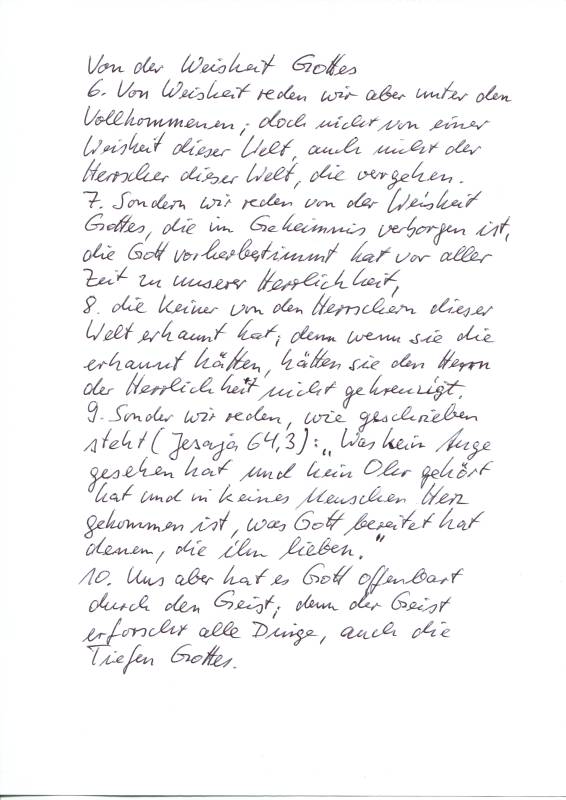 Von der Weisheit Gottes
6. Von Weisheit reden wir aber unter den
Vollkommenen; doch nicht von einer
Weisheit dieser Welt, auch nicht der
Herrscher dieser Welt, die vergehen.
7. Sondern wir reden von der Weisheit
Gottes, die im Geheimnis verborgen ist,
die Gott vorherbestimmt hat vor aller
Zeit zu unserer Herrlichkeit,
8. die keiner von den Herrschern dieser
Welt erkannt hat; denn wenn sie die
erkannt hätten, hätten sie den Herrn
der Herrlichkeit nicht gekreuzigt.
9. Sonder wir reden, wie geschrieben
steht (Jesaja 64,3): „Was kein Auge
gesehen hat und kein Ohr gehört
hat und in keines Menschen Herz
gekommen ist, was Gott bereitet hat
denen, die ihn lieben.“
10. Uns aber hat es Gott offenbart
durch den Geist; denn der Geist
erforscht alle Dinge, auch die
Tiefen Gottes.